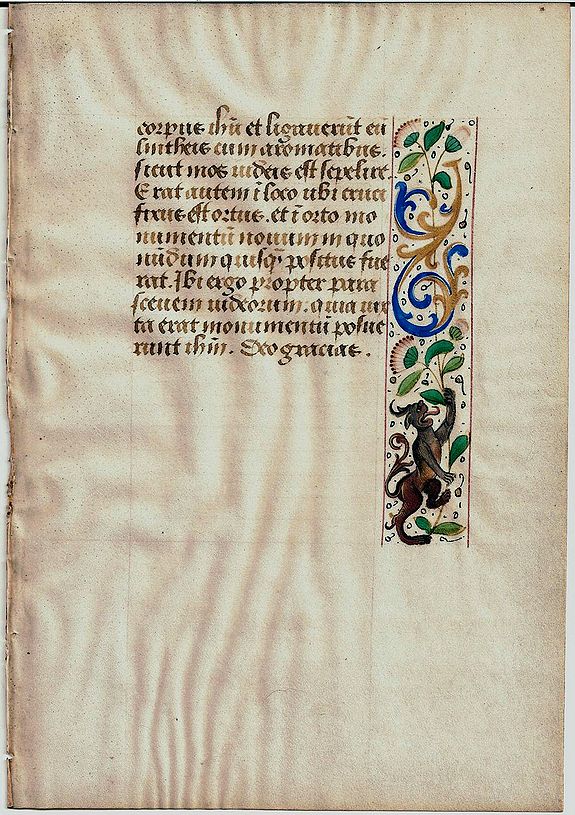 corpus ihū et ligauerūt eū
lintheis cum aromatibus.
sicut mos iudeis est sepelire
Erat autem ī loco ubi cruci
fixus est ortus. et ī orto mo
numentū nouum in quo
nūdum quisqȝ positus fue
rat. Ibi ergo propter para
sceuem iudeorum. quia iux
ta erat monumentū posue
runt ihm̄. Deo gracias.